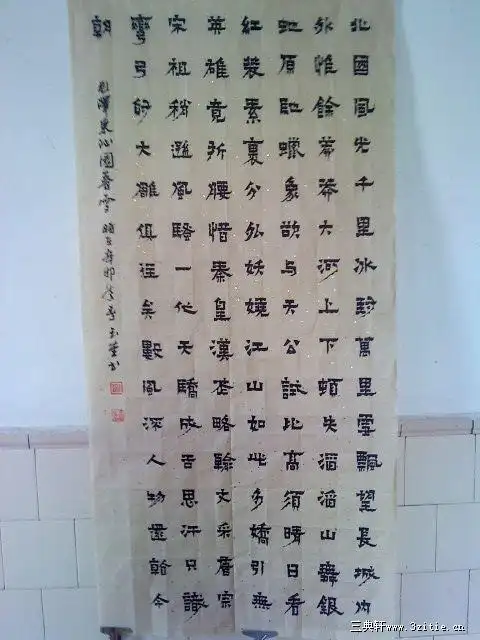 北國風光千里冰封萬里雪飄望長城内
外惟餘莽莽大河上下頓失滔滔山舞銀
虵原馳蠟象欲与天公試比高須晴日看
紅裝素裹分外妖嬈江山如此多嬌引無
英雄竟折腰惜秦皇漢武略輸文采唐宗
宋祖稍遜風騷一代天驕成吉思汗只識
彎弓射大雕俱往矣數風流人物還看今
朝
毛澤東沁園春雪
三典轩www.3zitie.cn